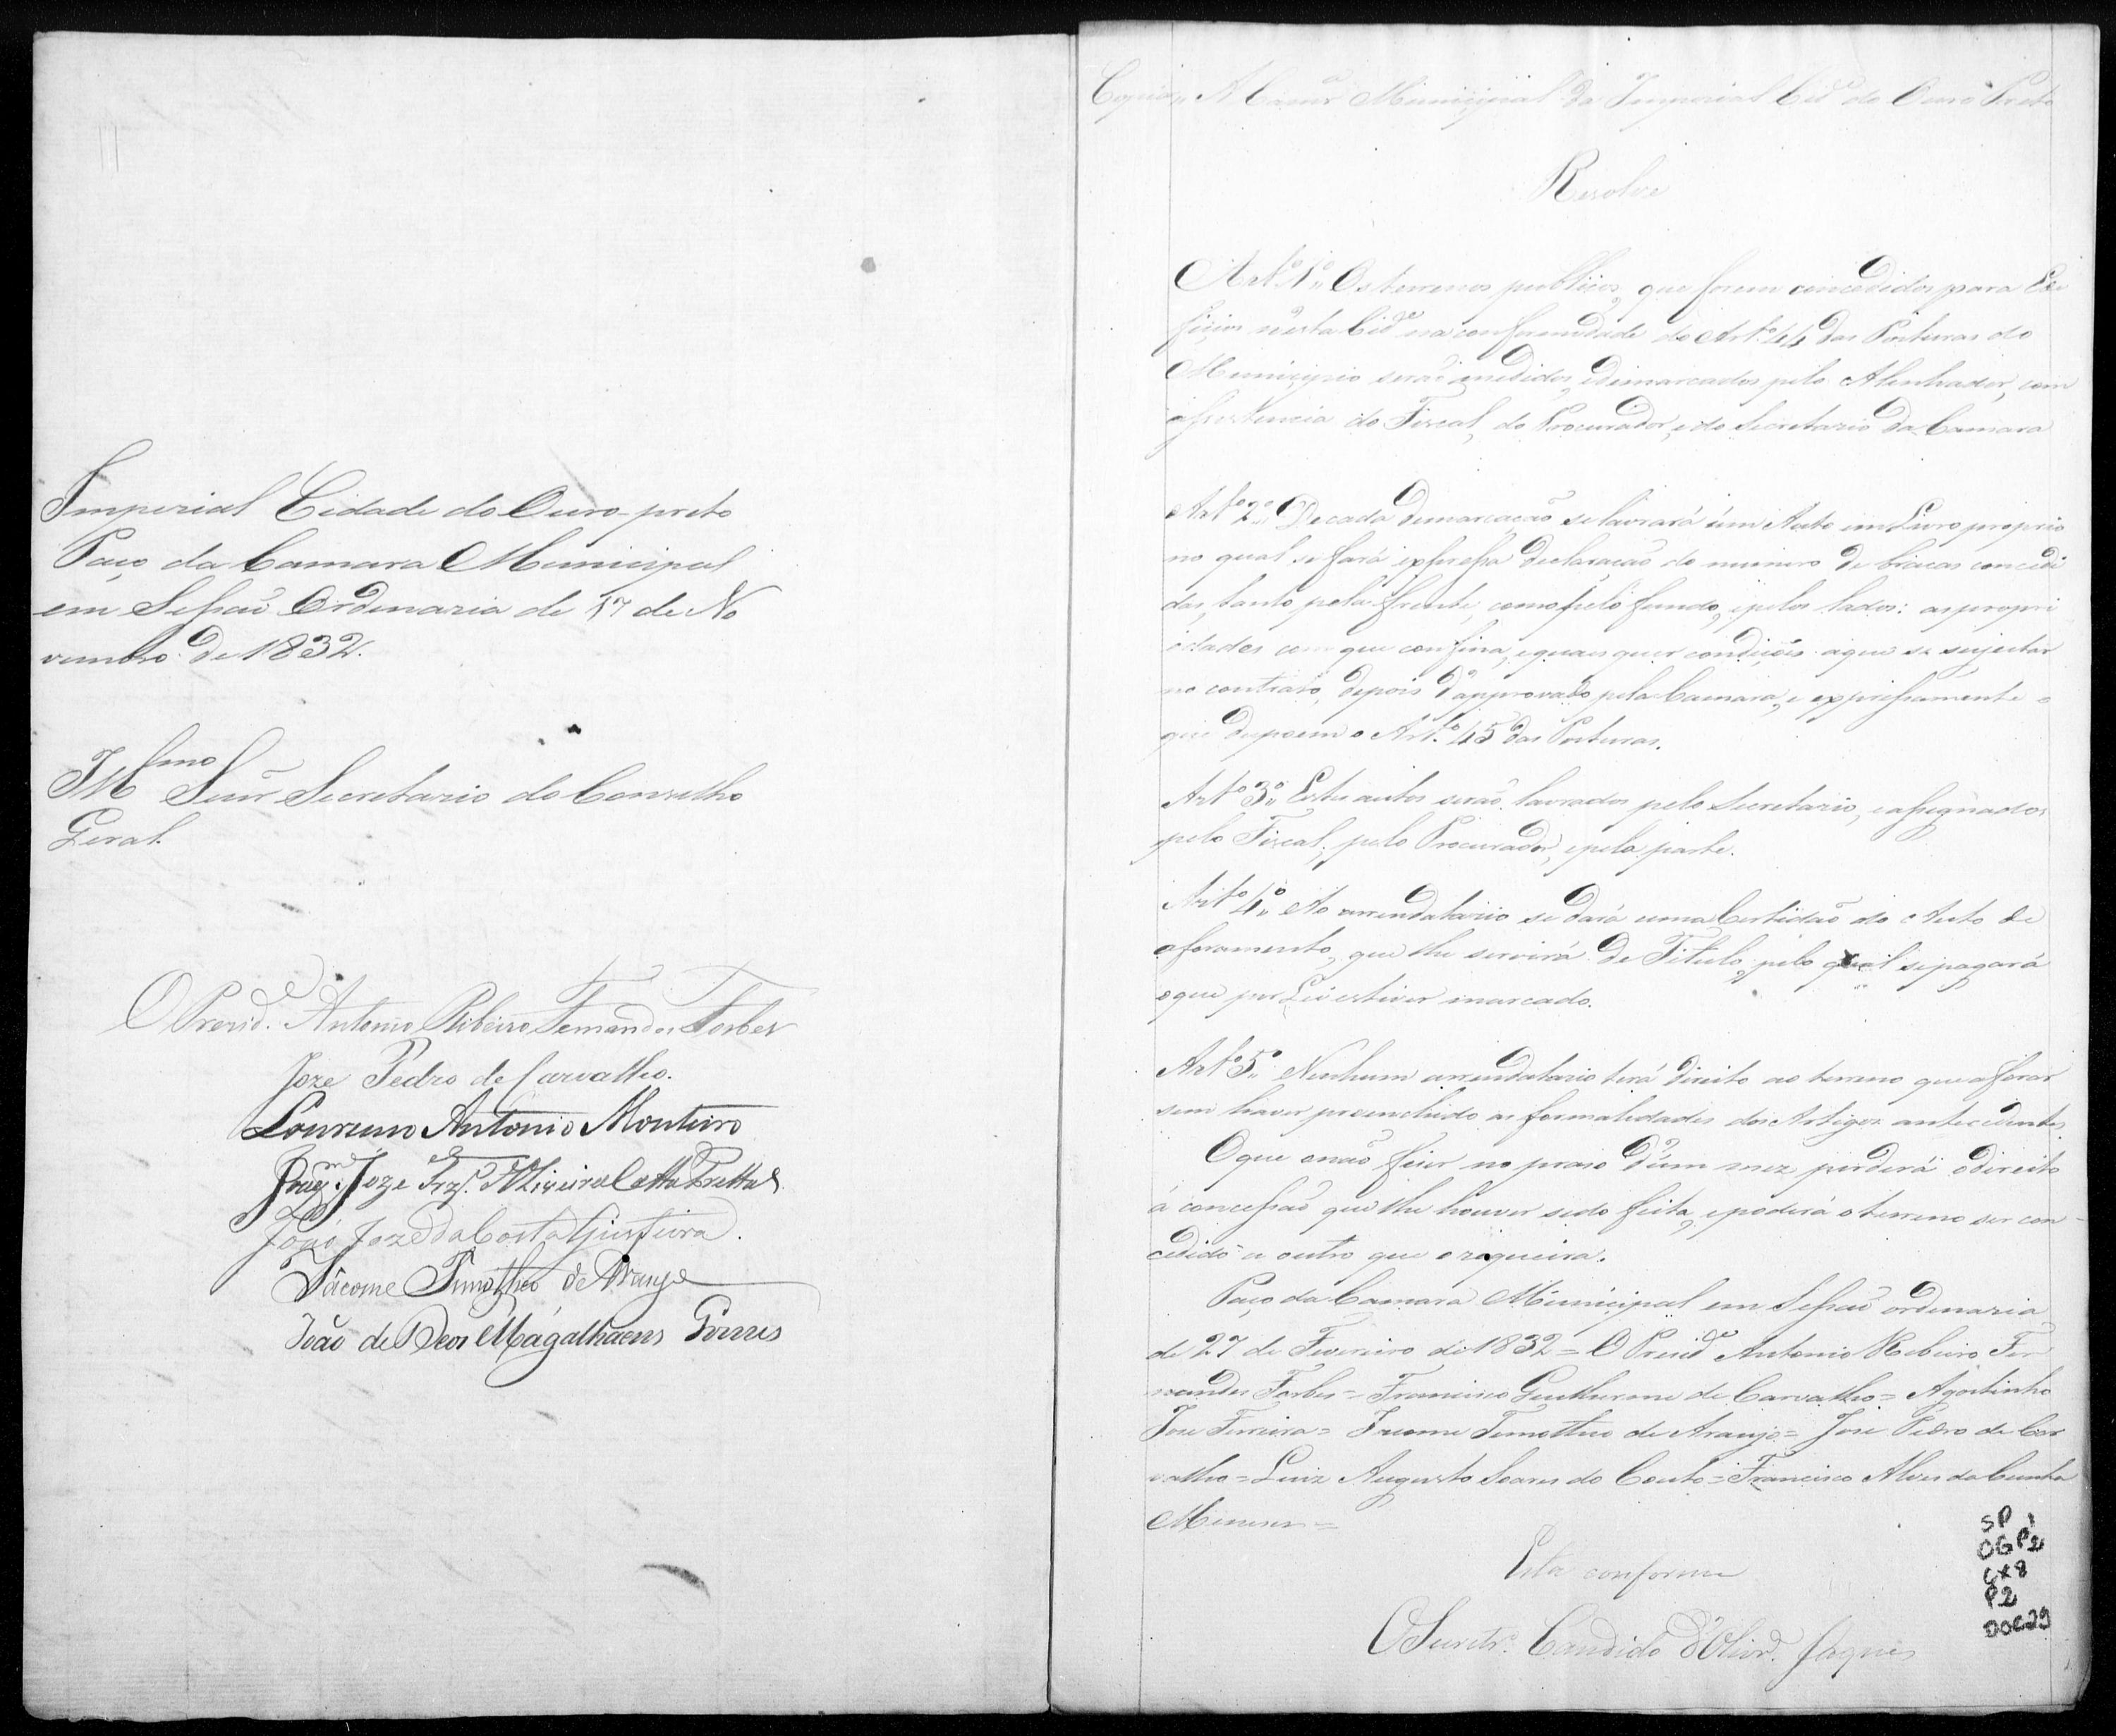 Imperial Cidade do Ouro-preto
Paço da Camara Municipal
em Sessaõ Ordinaria de 17 de No
vembro de 1832.
Illmo Senr Secretario do Conselho
Geral.
O Presid.e Antonio Ribeiro Fernandes Forbes
Joze Pedro de Carvalho.
Lourenço Antonio Monteiro
Joze
João Joze da Costa
Jácome Timotheo de Araujo
João de Deos Magalhaens Gomes
Copia,, A Camrª Municipal da Imperial Cidᵉ do Ouro Preto
Resolve
Artº 1º,, Os terrenos publicos, que forem concedidos para Edi
ficios nesta Cidᵉ na conformidade do Artº 44 das Posturas do
Municipio seraõ medidos, edemarcados pelo Alinhador, com
assistencia do Fiscal, do Procurador, e do Secretario da Camara
Artº 2º,, De cada demarcaçaõ se lavrará úm Auto em Livro proprio
no qual se fará expressa declaraçaõ do numero de braças concedi
das, tanto pela frente, como pelo fundo, epelos lados: as propri
idades com que confina, equaes quer condições aque se sujeitar
no contrato, depois d'approvado pela Camara, e expressamente o
que dispoem o Art.º 45 das Posturas.
Artº 3º,, Estes autos seraõ lavrados pelo Secretario, eassignados
pelo Fiscal, pelo Procurador, epela parte.
Artº 4º,, Ao arrendatario se dará uma Certidaõ do Auto de
aforamento, que lhe servirá de Titulo, pelo qual sepagará
oque por Lei estiver marcado.
Artº 5º,, Nenhum arrendatario terá direito ao terreno que aforar
sem haver preenchido as formalidades dos Artigos antecedentes
Oque onaõ fizer no praso d'úm mez perderá odireito
á concessaõ que lhe houver sido feita, epoderá oterreno ser con-
cedido a outro que o requeira.
Paço da Camara Municipal em Sessaõ ordinaria
de 27 de Fevereiro de 1832 = O Presidᵉ Antonio Ribeiro Fer
nandes Forbes = Francisco Guilherme de Carvalho = Agostinho
Jose Ferreira = Jacome Timotheo de Araujo = Jose Pedro de Car
valho = Luiz Augusto Soares do Couto = Francisco Alves da Cunha
Menezes =
Está conforme
O Secretrº. Candido d'Olivrª. Jaques
SP 1
OGP2
CX8
P2
DOC29